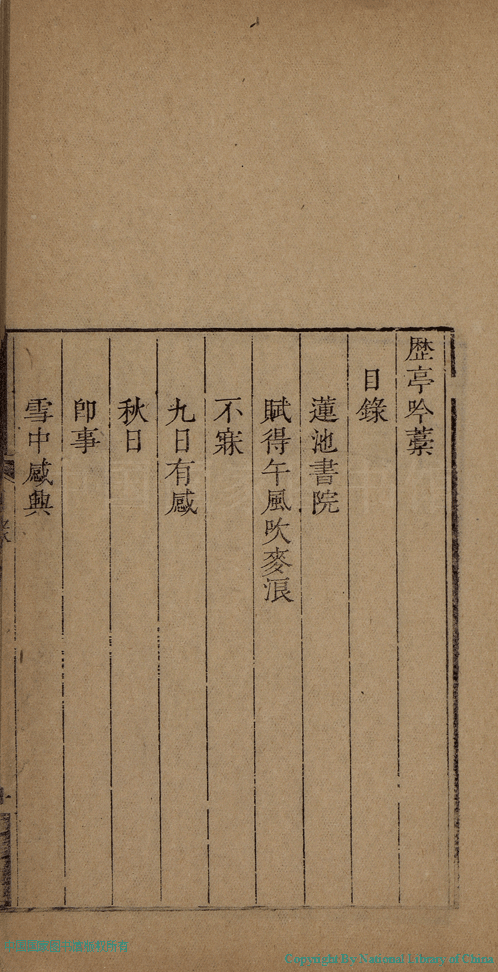 歴亭吟藁
目錄
蓮池書院
賦得午風吹麥浪
不寐
九日有感
秋日
卽事
雪中感興
Copyright By National Library of China